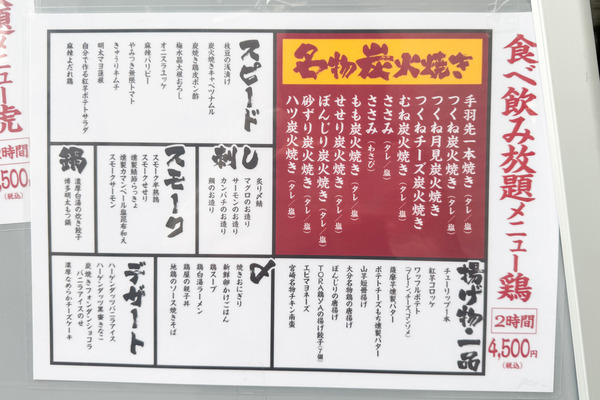 食べ飲み放題メニュー鶏
2時間
4,500円
(税込)
名物炭火焼き
手羽先一本焼き(タレ/塩)
つくね炭火焼き(タレ/塩)
つくね月見炭火焼き
つくねチーズ炭火焼き
むね炭火焼き(タレ/塩)
ささみ(タレ/塩)
ささみ(わさび)
もも炭火焼き(タレ/塩)
せせり炭火焼き(タレ/塩)
ぼんじり炭火焼き(タレ/塩)
砂ずり炭火焼き(タレ/塩)
ハツ炭火焼き(タレ/塩)
スピード
枝豆の浅漬け
炭火焼きキャベツナムル
炭焼き鶏皮ポン酢
梅水晶大根おろし
オニスラユッケ
麻辣バリビー
やみつき無限トマト
きゅうりキムチ
明太マヨ蓮根
自分で作る紅芋ポテトサラダ
麻辣よだれ鶏
刺し
炙り〆鯖
マグロのお造り
サーモンのお造り
カンパチのお造り
鯛のお造り
スモーク
スモーク半熟鶏
スモークせせり
燻製鯖節らっきょ
燻製カマンベール塩昆布和え
スモークサーモン
鍋
濃厚白湯の炊き餃子
博多明太もつ鍋
揚げ物・一品
チューリップ一本
紅芋コロッケ
ワッフルポテト
(プレーン/チーズ/コンソメ)
薩摩芋燻製バター
ポテトチーズもち燻製バター
山芋短冊揚げ
大分名物鶏の唐揚げ
ぼんじりの唐揚げ
TORA鶏ひ人の揚げ餃子(7個)
エビマヨネーズ
宮崎名物チキン南蛮
〆
焼きおにぎり
新鮮卵かけごはん
鶏スープ
鶏白湯ラーメン
鶏屋の親子丼
地鶏のソース焼きそば
デザート
ハーゲンダッツバニラアイス
ハーゲンダッツ黒蜜きなこ
炭焼きフォンダンショコラ
バニラアイスのせ
濃厚なめらかチーズケーキ
題メニュー虎
2時間
,500円
(税込)